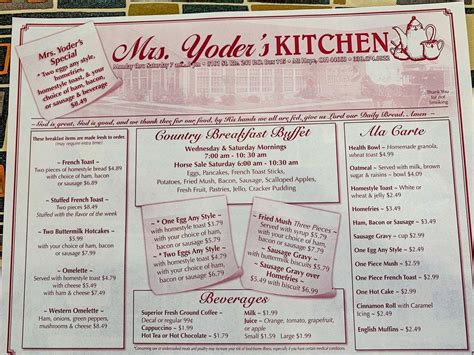 Mrs. Yoder's
Special
~ Two eggs any style,
homefries,
homestyle toast, & your
choice of ham, bacon,
or sausage & beverage
$8.49
Mrs. Yoder's KITCHEN
Monday thru Saturday
Mt Hope, OH 44660
Thank You
for not
smoking
~God is great, God is good, and we thank thee for our food, by His hands we all are fed, give us Lord our Daily Bread. Amen~
These breakfast items are made fresh to order.
(may require extra time)
~ French Toast ~
Two pieces of homestyle bread $4.89
with your choice of ham, bacon
or sausage $6.89
~ Stuffed French Toast ~
Stuffed with the flavor of the week
~ Two Buttermilk Hotcakes ~
$3.99
with your choice of ham,
bacon, or sausage $5.99
~ Omelette ~
Served with homestyle toast $4.79
with cheese $5.49
with ham & cheese $7.49
~ Western Omelette ~
Ham, onions, green peppers,
mushrooms & cheese
Country Breakfast Buffet
Wednesday & Saturday Mornings
7:00 am - 10:30 am
Horse Sale Saturday 6:00 am - 10:30 am
Eggs, Pancakes, French Toast Sticks,
Potatoes, Fried Mush, Bacon, Sausage, Scalloped Apples,
Fresh Fruit, Pastries, Jello, Cracker Pudding
~ One Egg Any Style ~
with homestyle toast $3.79
with your choice of ham,
bacon or sausage $5.79
~ Two Eggs Any Style ~
with homestyle toast $4.79
with your choice of ham,
bacon or sausage
Fried Mush Three Pieces
Served with syrup $5.79
with your choice of ham,
bacon or sausage
~ Sausage Gravy over
Homefries ~
$5.49
with biscuit $6.99
Beverages
Superior Fresh Ground Coffee ~
Decaf or regular 99¢
Cappuccino ~ $1.99
Hot Tea or Hot Chocolate ~ $1.79
Milk ~ $1.99
Juice ~ Orange, tomato,
apple or grapefruit,
Small $1.59 Large
Ala Carte
Health Bowl ~ Homemade granola,
wheat toast $4.99
Oatmeal ~ Served with milk, brown
sugar & raisins ~ bowl
Homestyle Toast ~ White or
Wheat $1.49
Homefries ~ $2.49
Ham, Bacon, or Sausage ~ $2.99
Sausage Gravy over biscuit ~ $2.99
One Egg Any Style ~ $2.49
One Piece French Toast ~ $2.49
One Hot Cake ~ $2.99
Cinnamon Roll with Caramel
Icing ~ $2.49
English Muffins ~ $2.49